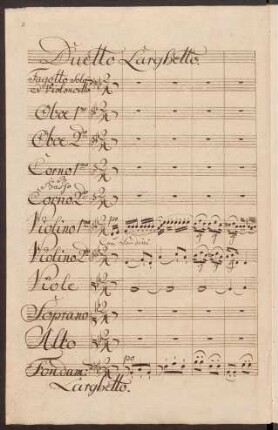 Duetto Larghetto.
Fagotto Solo
o Violoncello
Oboe 1mo
Oboe 2do
Corno 1mo
Corno 2do
Violino 1mo
Violino 2do
Viole
Soprano
Alto
Fondam:
po
Larghetto.